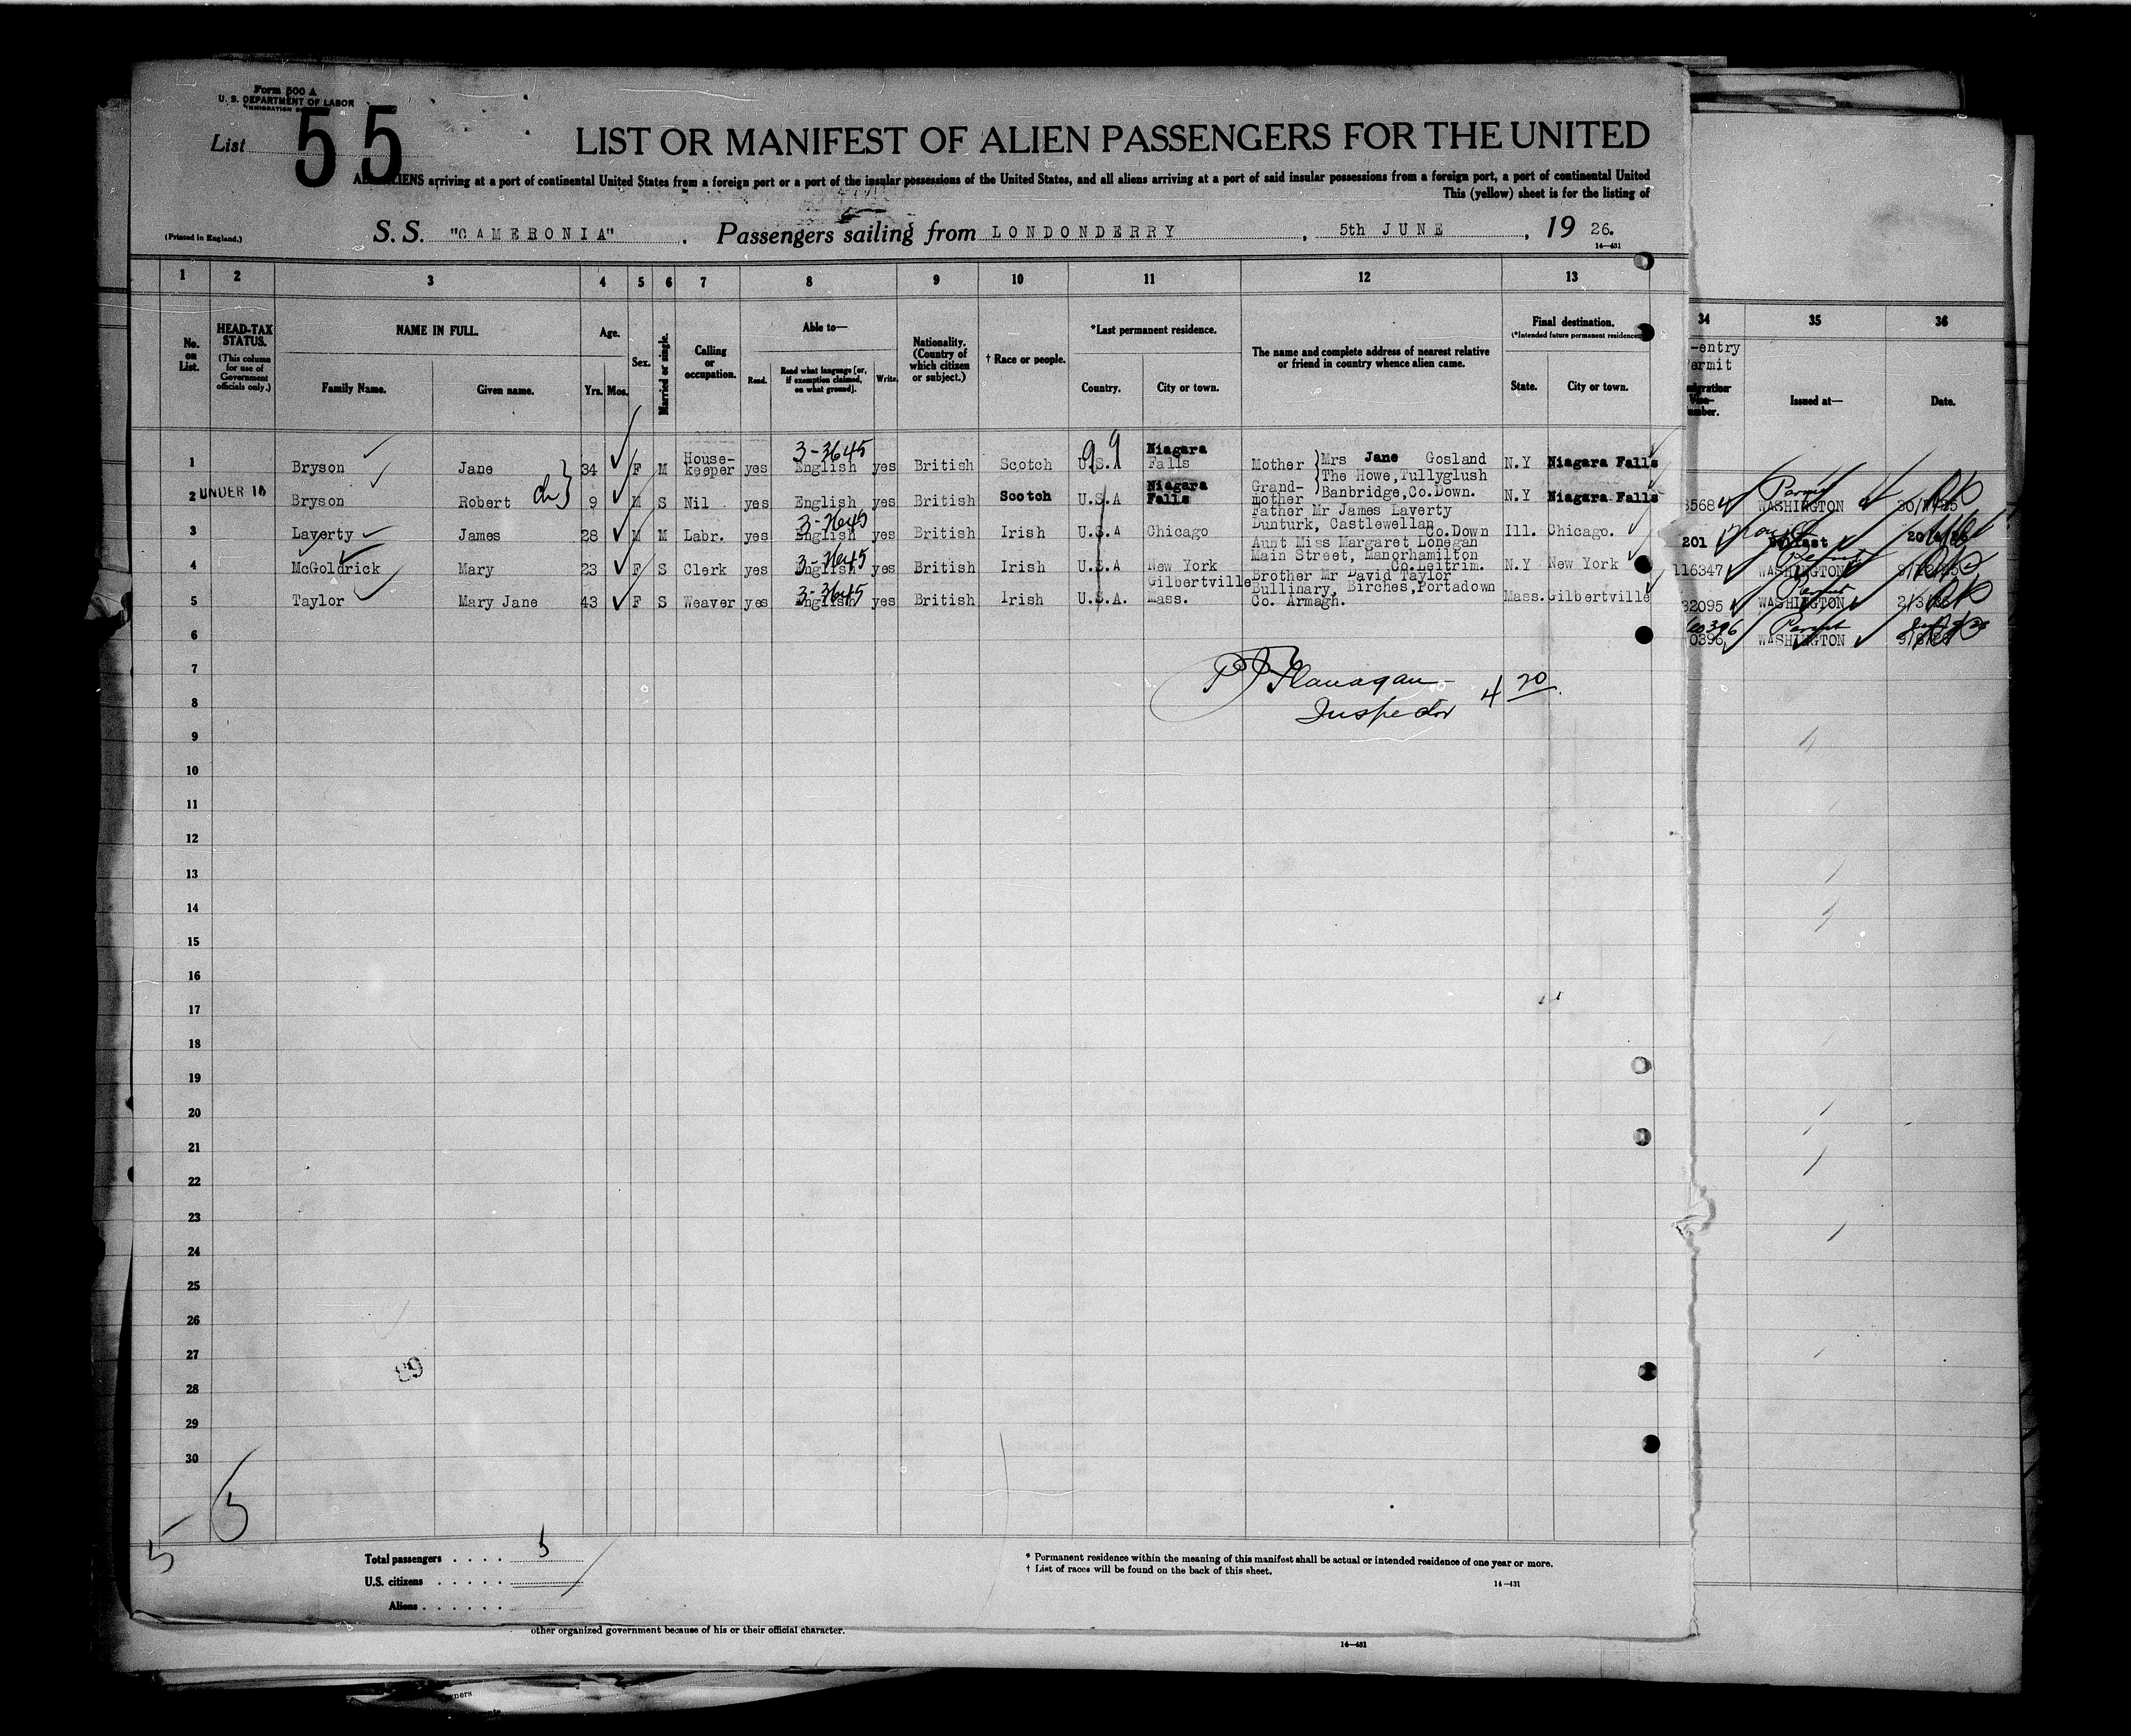 Form 500 A
U. S. DEPARTMENT OF LABOR
List 55
LIST OR MANIFEST OF ALIEN PASSENGERS FOR THE UNITED
ALIENS arriving at a port of continental United States from a foreign port or a port of the insular possessions of the United States, and all aliens arriving at a port of said insular possessions from a foreign port, a port of continental United
This (yellow) sheet is for the listing of
(Printed in England.)
S. S. "CAMERONIA" . Passengers sailing from LONDONDERRY , 5th JUNE , 19 26.
14—431
1 2 3 4 5 6 7 8 9 10 11 12 13
No. on List.
HEAD-TAX STATUS.
(This column for use of Government officials only.)
NAME IN FULL.
Family Name. Given name.
Age.
Yrs. Mos.
Sex.
Married or single.
Calling or occupation.
Able to—
Read. Read what language [or, if exemption claimed, on what ground]. Write.
Nationality. (Country of which citizen or subject.)
† Race or people.
*Last permanent residence.
Country. City or town.
The name and complete address of nearest relative or friend in country whence alien came.
Final destination.
(*Intended future permanent residence.)
State. City or town.
34 35 36
-entry
ermit
Issued at— Date.
1 Bryson Jane 34 F M House-keeper yes 3-3645 English yes British Scotch U.S.A Niagara Falls Mother Mrs Jane Gosland N.Y Niagara Falls
The Howe, Tullyglush
2 UNDER 16 Bryson Robert ch 9 M S Nil yes English yes British Scotch U.S.A Niagara Falls Grand-mother Banbridge, Co. Down. N.Y Niagara Falls
3 Laverty James 28 M M Labr. yes 3-3645 English yes British Irish U.S.A Chicago Father Mr James Laverty Dunturk, Castlewellan Co. Down Ill. Chicago.
4 McGoldrick Mary 23 F S Clerk yes 3-3645 English yes British Irish U.S.A New York Aunt Miss Margaret Lonegan Main Street, Manorhamilton Co. Leitrim. N.Y New York
5 Taylor Mary Jane 43 F S Weaver yes 3-3645 English yes British Irish U.S.A. Gilbertville Mass. Brother Mr David Taylor Dullinary, Birches, Portadown Co. Armagh. Mass. Gilbertville
Permit
WASHINGTON
201 Belfast
116347 WASHINGTON
32095 Permit WASHINGTON
Permit
0396 WASHINGTON
6
7
P J Flanagan
Inspector 4 20
8
9
10
11
12
13
14
15
16
17
18
19
20
21
22
23
24
25
26
27
89
28
29
30
5
5
Total passengers . . . . 5
U.S. citizens . . . . .
Aliens . . . . . .
* Permanent residence within the meaning of this manifest shall be actual or intended residence of one year or more.
† List of races will be found on the back of this sheet.
14—431
other organized government because of his or their official character.
14—431